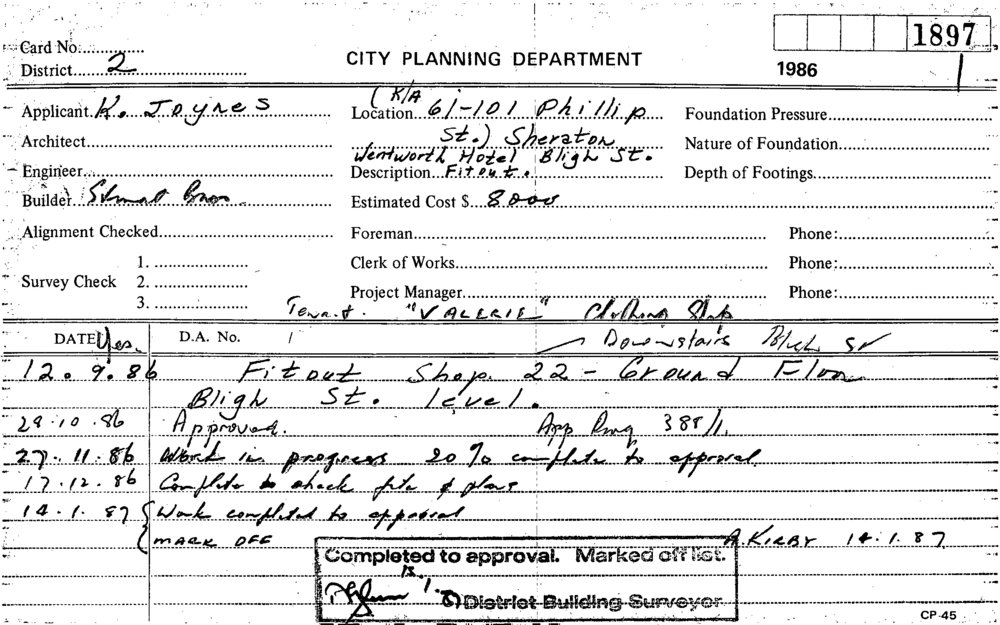 1897
Card No.
CITY PLANNING DEPARTMENT
District 2
1986
Applicant K. Joynes
(K/A
Location 61-101 Phillip
St.) Sheraton
Wentworth Hotel Bligh St.
Foundation Pressure
Architect
Nature of Foundation
Engineer
Description Fitout.
Depth of Footings
Builder Stuart Bros.
Estimated Cost $ 8000
Alignment Checked
Foreman
Phone:
1.
Clerk of Works
Phone:
Survey Check 2.
Project Manager
Phone:
3.
Tenant. "VALERIE" Clothing Shop
DATE Yes.
D.A. No. /
Downstairs Bligh St
12.9.86 Fitout Shop 22 - Ground Floor
Bligh St. level.
29.10.86 Approved. App Dwg 388/1.
27.11.86 Work in progress 20% complete to approval.
17.12.86 Complete to check file & plans
14.1.87 Work completed to approval
MARK OFF A. KIRBY 14.1.87
Completed to approval. Marked off list.
District Building Surveyor
CP-45